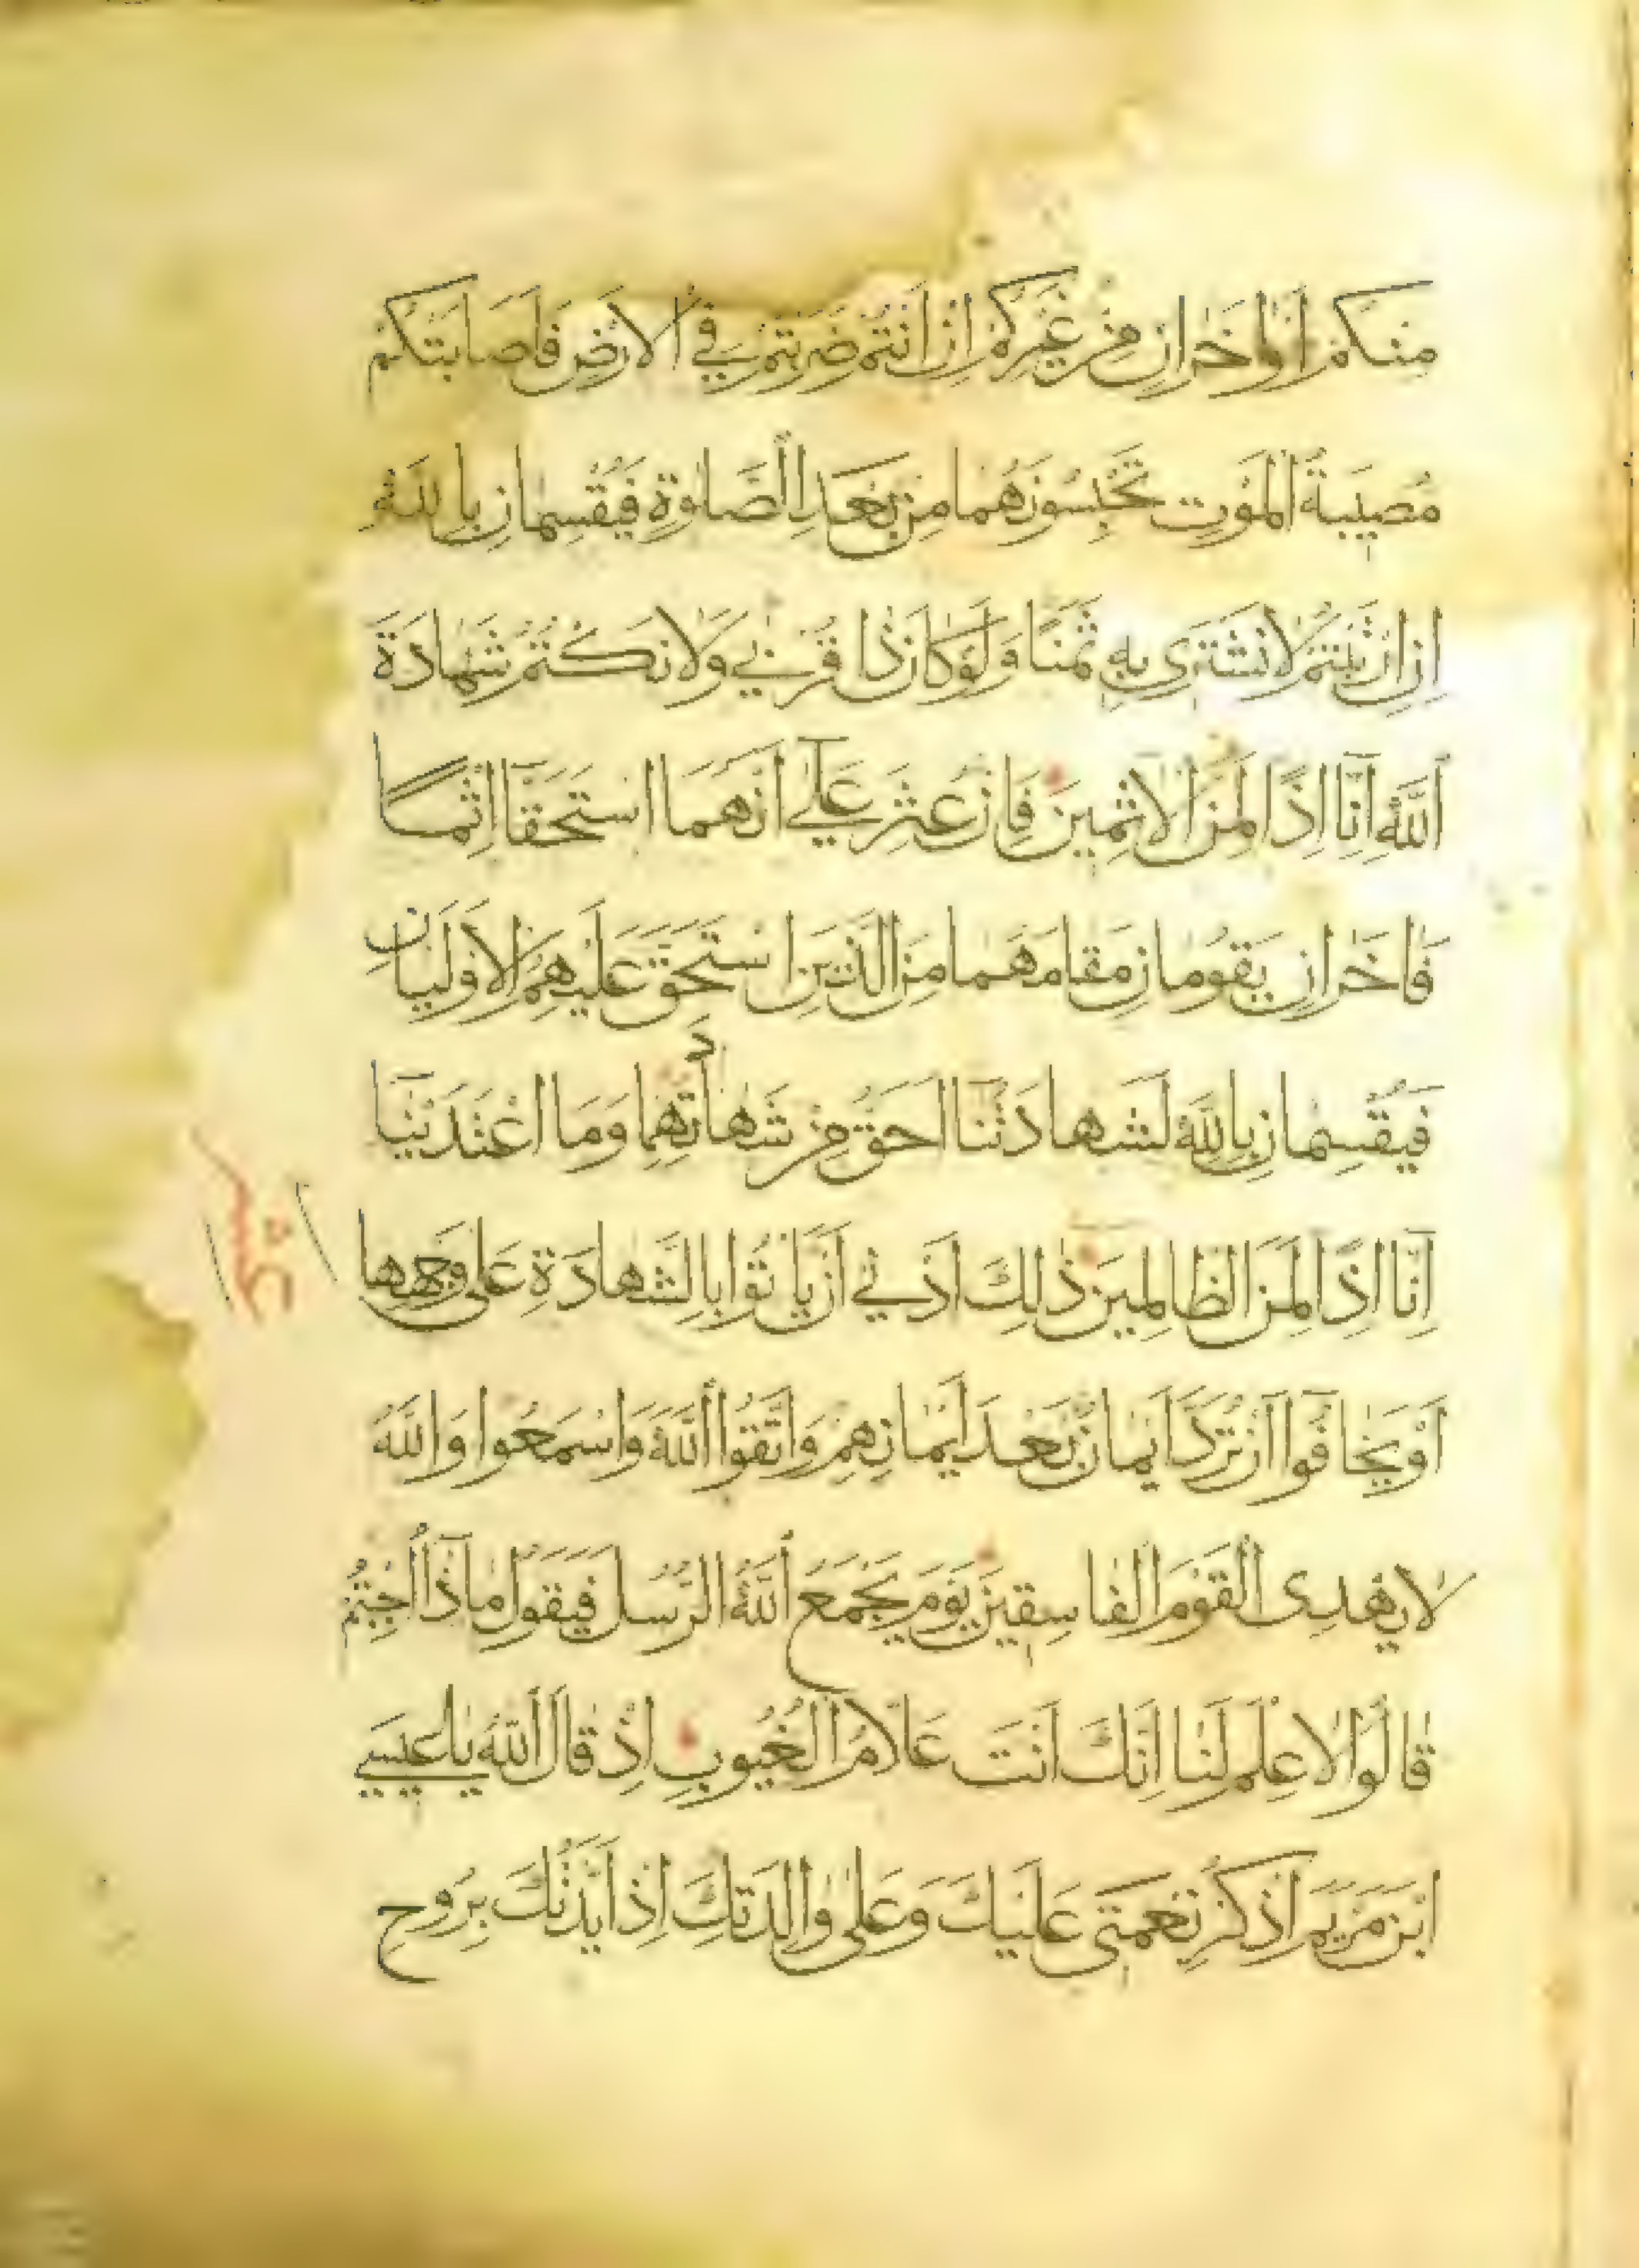 مِنكُمْ اَوْ اٰخَرَانِ مِنْ غَيْرِكُمْ اِنْ اَنْتُمْ ضَرَبْتُمْ فِي الْاَرْضِ فَاَصَابَتْكُمْ
مُصِيبَةُ الْمَوْتِ تَحْبِسُونَهُمَا مِنْ بَعْدِ الصَّلٰوةِ فَيُقْسِمَانِ بِاللّٰهِ
اِنِ ارْتَبْتُمْ لَا نَشْتَرِى بِهِ ثَمَنًا وَلَوْ كَانَ ذَا قُرْبٰي وَلَا نَكْتُمُ شَهَادَةَ
اللّٰهِ اِنَّا اِذًا لَمِنَ الْاٰثِمِينَ فَاِنْ عُثِرَ عَلٰٓي اَنَّهُمَا اسْتَحَقَّآ اِثْمًا
فَاٰخَرَانِ يَقُومَانِ مَقَامَهُمَا مِنَ الَّذِينَ اسْتَحَقَّ عَلَيْهِمُ الْاَوْلَيَانِ
فَيُقْسِمَانِ بِاللّٰهِ لَشَهَادَتُنَآ اَحَقُّ مِنْ شَهَادَتِهِمَا وَمَا اعْتَدَيْنَآ
اِنَّا اِذًا لَمِنَ الظَّالِمِينَ ذٰلِكَ اَدْنٰي اَنْ يَاْتُوا بِالشَّهَادَةِ عَلٰى وَجْهِهَا
اَوْ يَخَافُوٓا اَنْ تُرَدَّ اَيْمَانٌ بَعْدَ اَيْمَانِهِمْ وَاتَّقُوا اللّٰهَ وَاسْمَعُوا وَاللّٰهُ
لَا يَهْدِى الْقَوْمَ الْفَاسِقِينَ يَوْمَ يَجْمَعُ اللّٰهُ الرُّسُلَ فَيَقُولُ مَاذَآ اُجِبْتُمْ
قَالُوا لَا عِلْمَ لَنَا اِنَّكَ اَنْتَ عَلَّامُ الْغُيُوبِ اِذْ قَالَ اللّٰهُ يَا عِيسَي
ابْنَ مَرْيَمَ اذْكُرْ نِعْمَتِى عَلَيْكَ وَعَلٰى وَالِدَتِكَ اِذْ اَيَّدْتُكَ بِرُوحِ